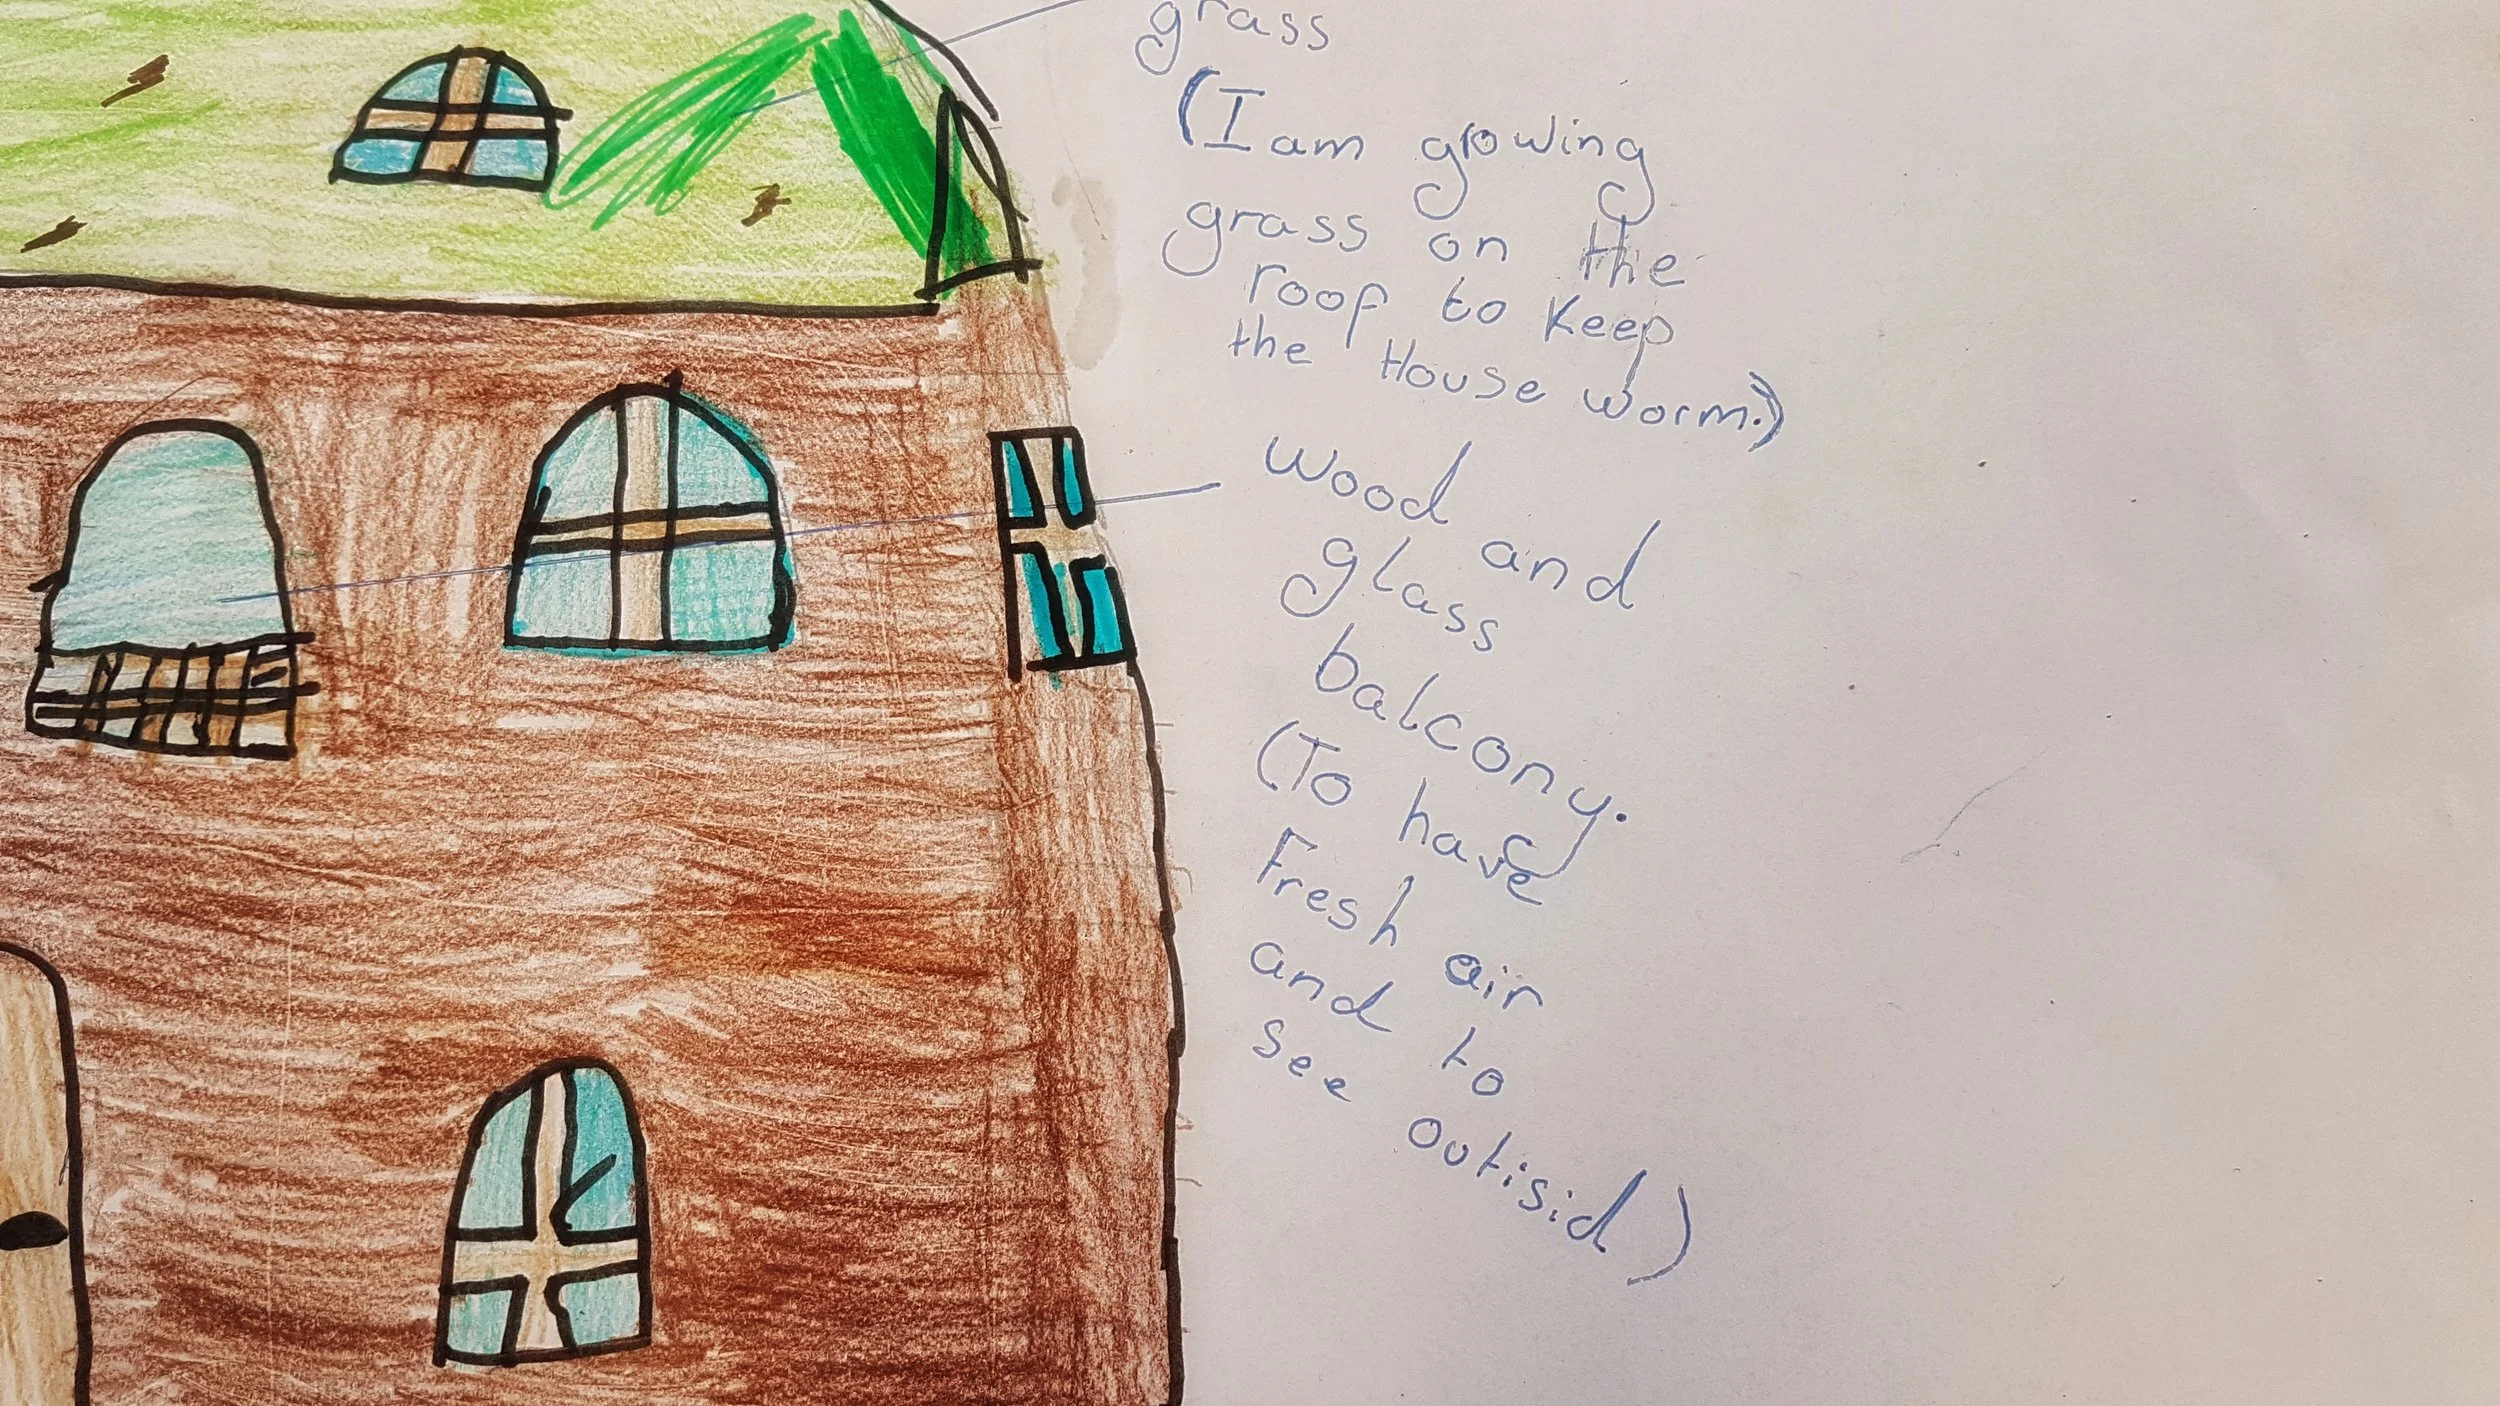 grass
(I am growing
grass on the
roof to keep
the House worm.)
wood and
glass
balcony.
(To have
Fresh air
and to
see outisid)